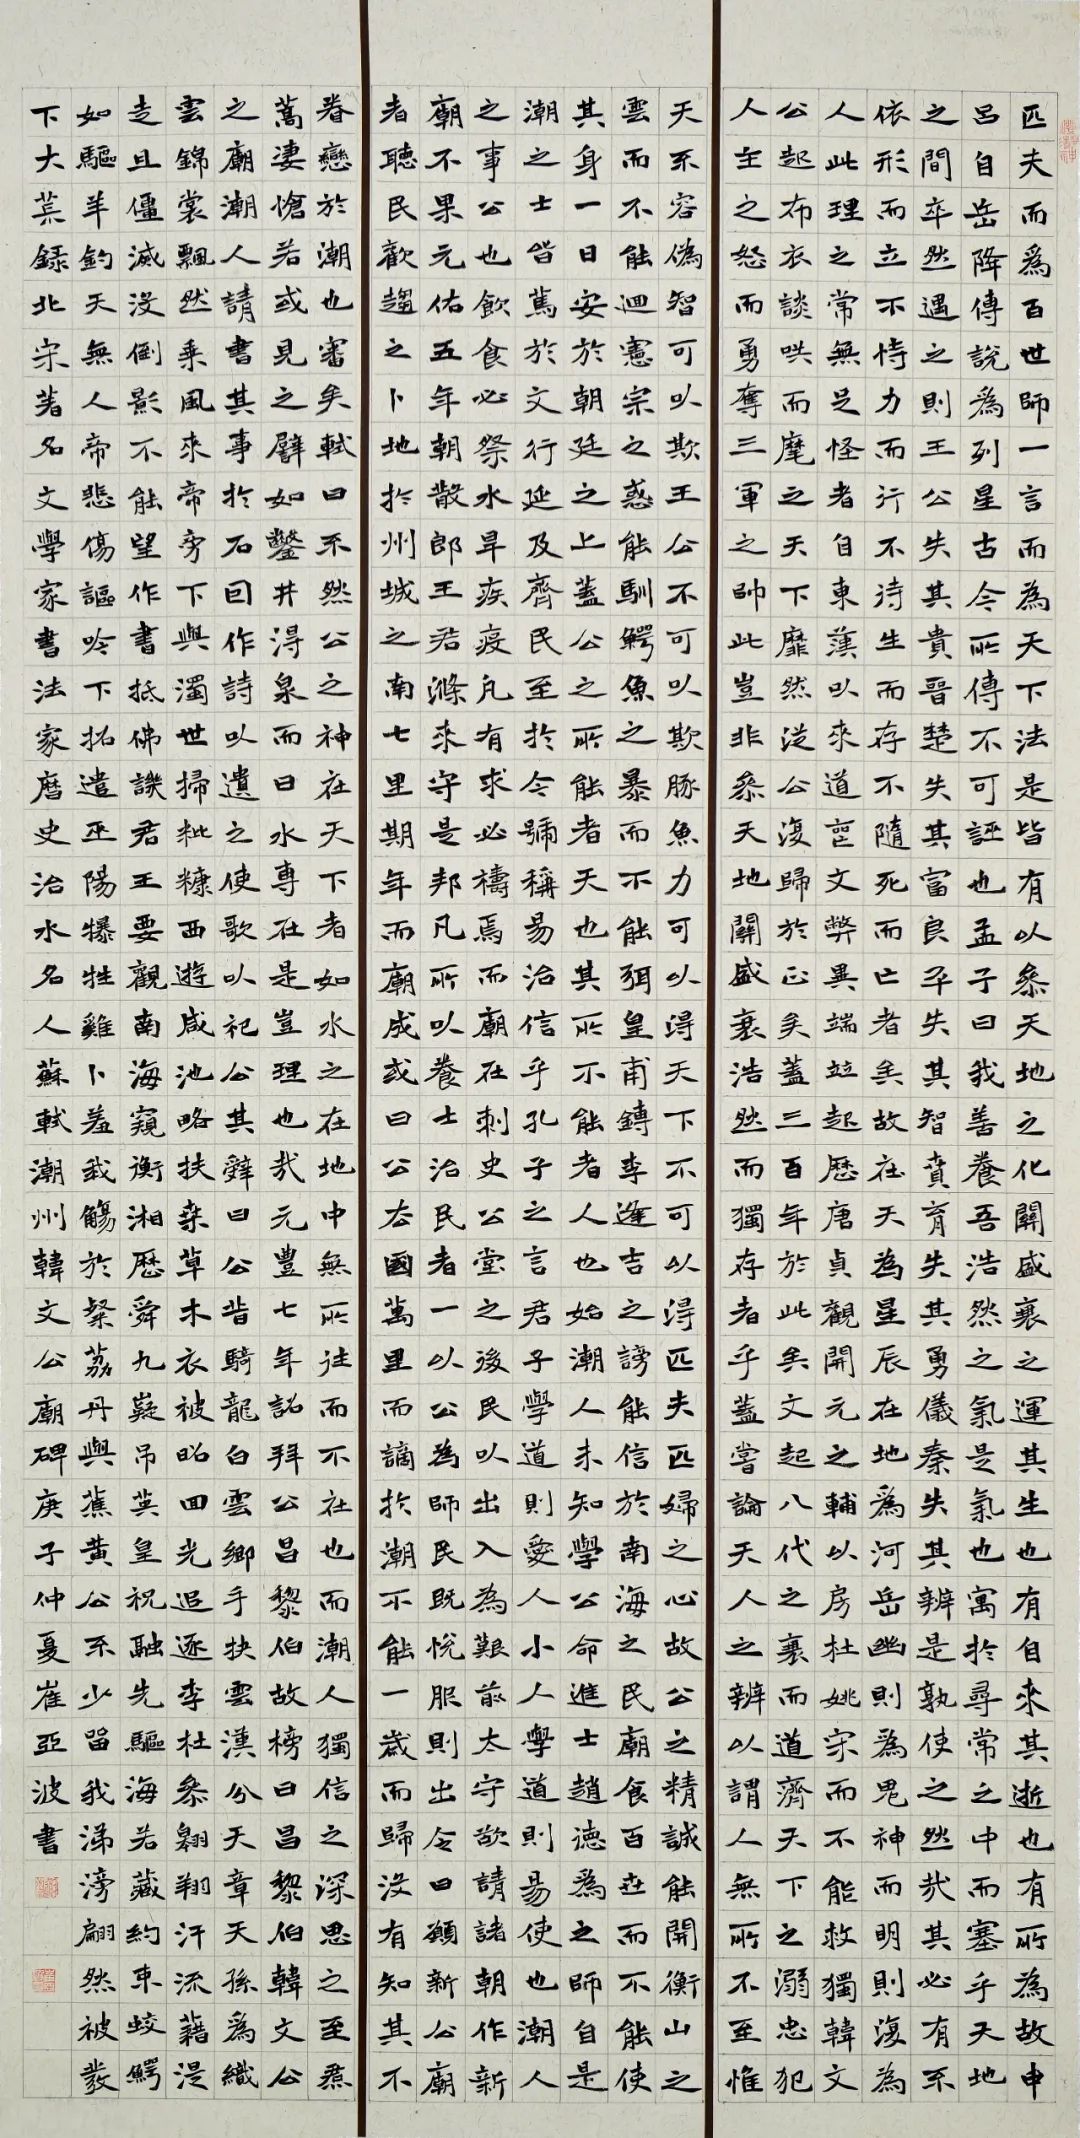 匹夫而爲百世師一言而為天下法是皆有以叅天地之化關盛衰之運其生也有自來其逝也有所為故申
呂自岳降傳說為列星古今所傳不可誣也孟子曰我善養吾浩然之氣是氣也寓於尋常之中而塞乎天地
之間卒然遇之則王公失其貴晉楚失其富良平失其智賁育失其勇儀秦失其辨是孰使之然哉其必有不
依形而立不恃力而行不待生而存不隨死而亡者矣故在天為星辰在地為河岳幽則為鬼神而明則復為
人此理之常無足怪者自東漢以來道喪文弊異端竝起歷唐貞觀開元之輔以房杜姚宋而不能救獨韓文
公起布衣談咲而麾之天下靡然從公復歸於正矣蓋三百年於此矣文起八代之衰而道濟天下之溺忠犯
人主之怒而勇奪三軍之帥此豈非叅天地關盛衰浩然而獨存者乎蓋嘗論天人之辨以謂人無所不至惟
天不容偽智可以欺王公不可以欺豚魚力可以得天下不可以得匹夫匹婦之心故公之精誠能開衡山之
雲而不能迴憲宗之惑能馴鰐魚之暴而不能弭皇甫鎛李逢吉之謗能信於南海之民廟食百世而不能使
其身一日安於朝廷之上蓋公之所能者天也其所不能者人也始潮人未知學公命進士趙德為之師自是
潮之士皆篤於文行延及齊民至於今號稱易治信乎孔子之言君子學道則愛人小人學道則易使也潮人
之事公也飲食必祭水旱疾疫凡有求必禱焉而廟在刺史公堂之後民以出入為艱前太守欲請諸朝作新
廟不果元佑五年朝散郎王君滌來守是邦凡所以養士治民者一以公為師民既悅服則出令曰願新公廟
者聽民歡趨之卜地於州城之南七里期年而廟成或曰公去國萬里而謫於潮不能一歲而歸沒有知其不
眷戀於潮也審矣軾曰不然公之神在天下者如水之在地中無所往而不在也而潮人獨信之深思之至焄
蒿凄愴若或見之譬如鑿井得泉而曰水專在是豈理也哉元豐七年詔拜公昌黎伯故榜曰昌黎伯韓文公
之廟潮人請書其事於石因作詩以遺之使歌以祀公其辭曰公昔騎龍白雲鄉手抉雲漢分天章天孫為織
雲錦裳飄然乘風來帝旁下與濁世掃粃糠西遊咸池略扶桑草木衣被昭回光追逐李杜叅翱翔汗流籍湜
走且僵滅沒倒影不能望作書抵佛譏君王要觀南海窺衡湘歷舜九嶷吊英皇祝融先驅海若藏約束蛟鰐
如驅羊鈞天無人帝悲傷謳吟下招遣巫陽犦牲雞卜羞我觴於粲荔丹與蕉黃公不少留我涕滂翩然被髮
下大荒錄北宋著名文學家書法家曆史治水名人蘇軾潮州韓文公廟碑庚子仲夏崔亞波書